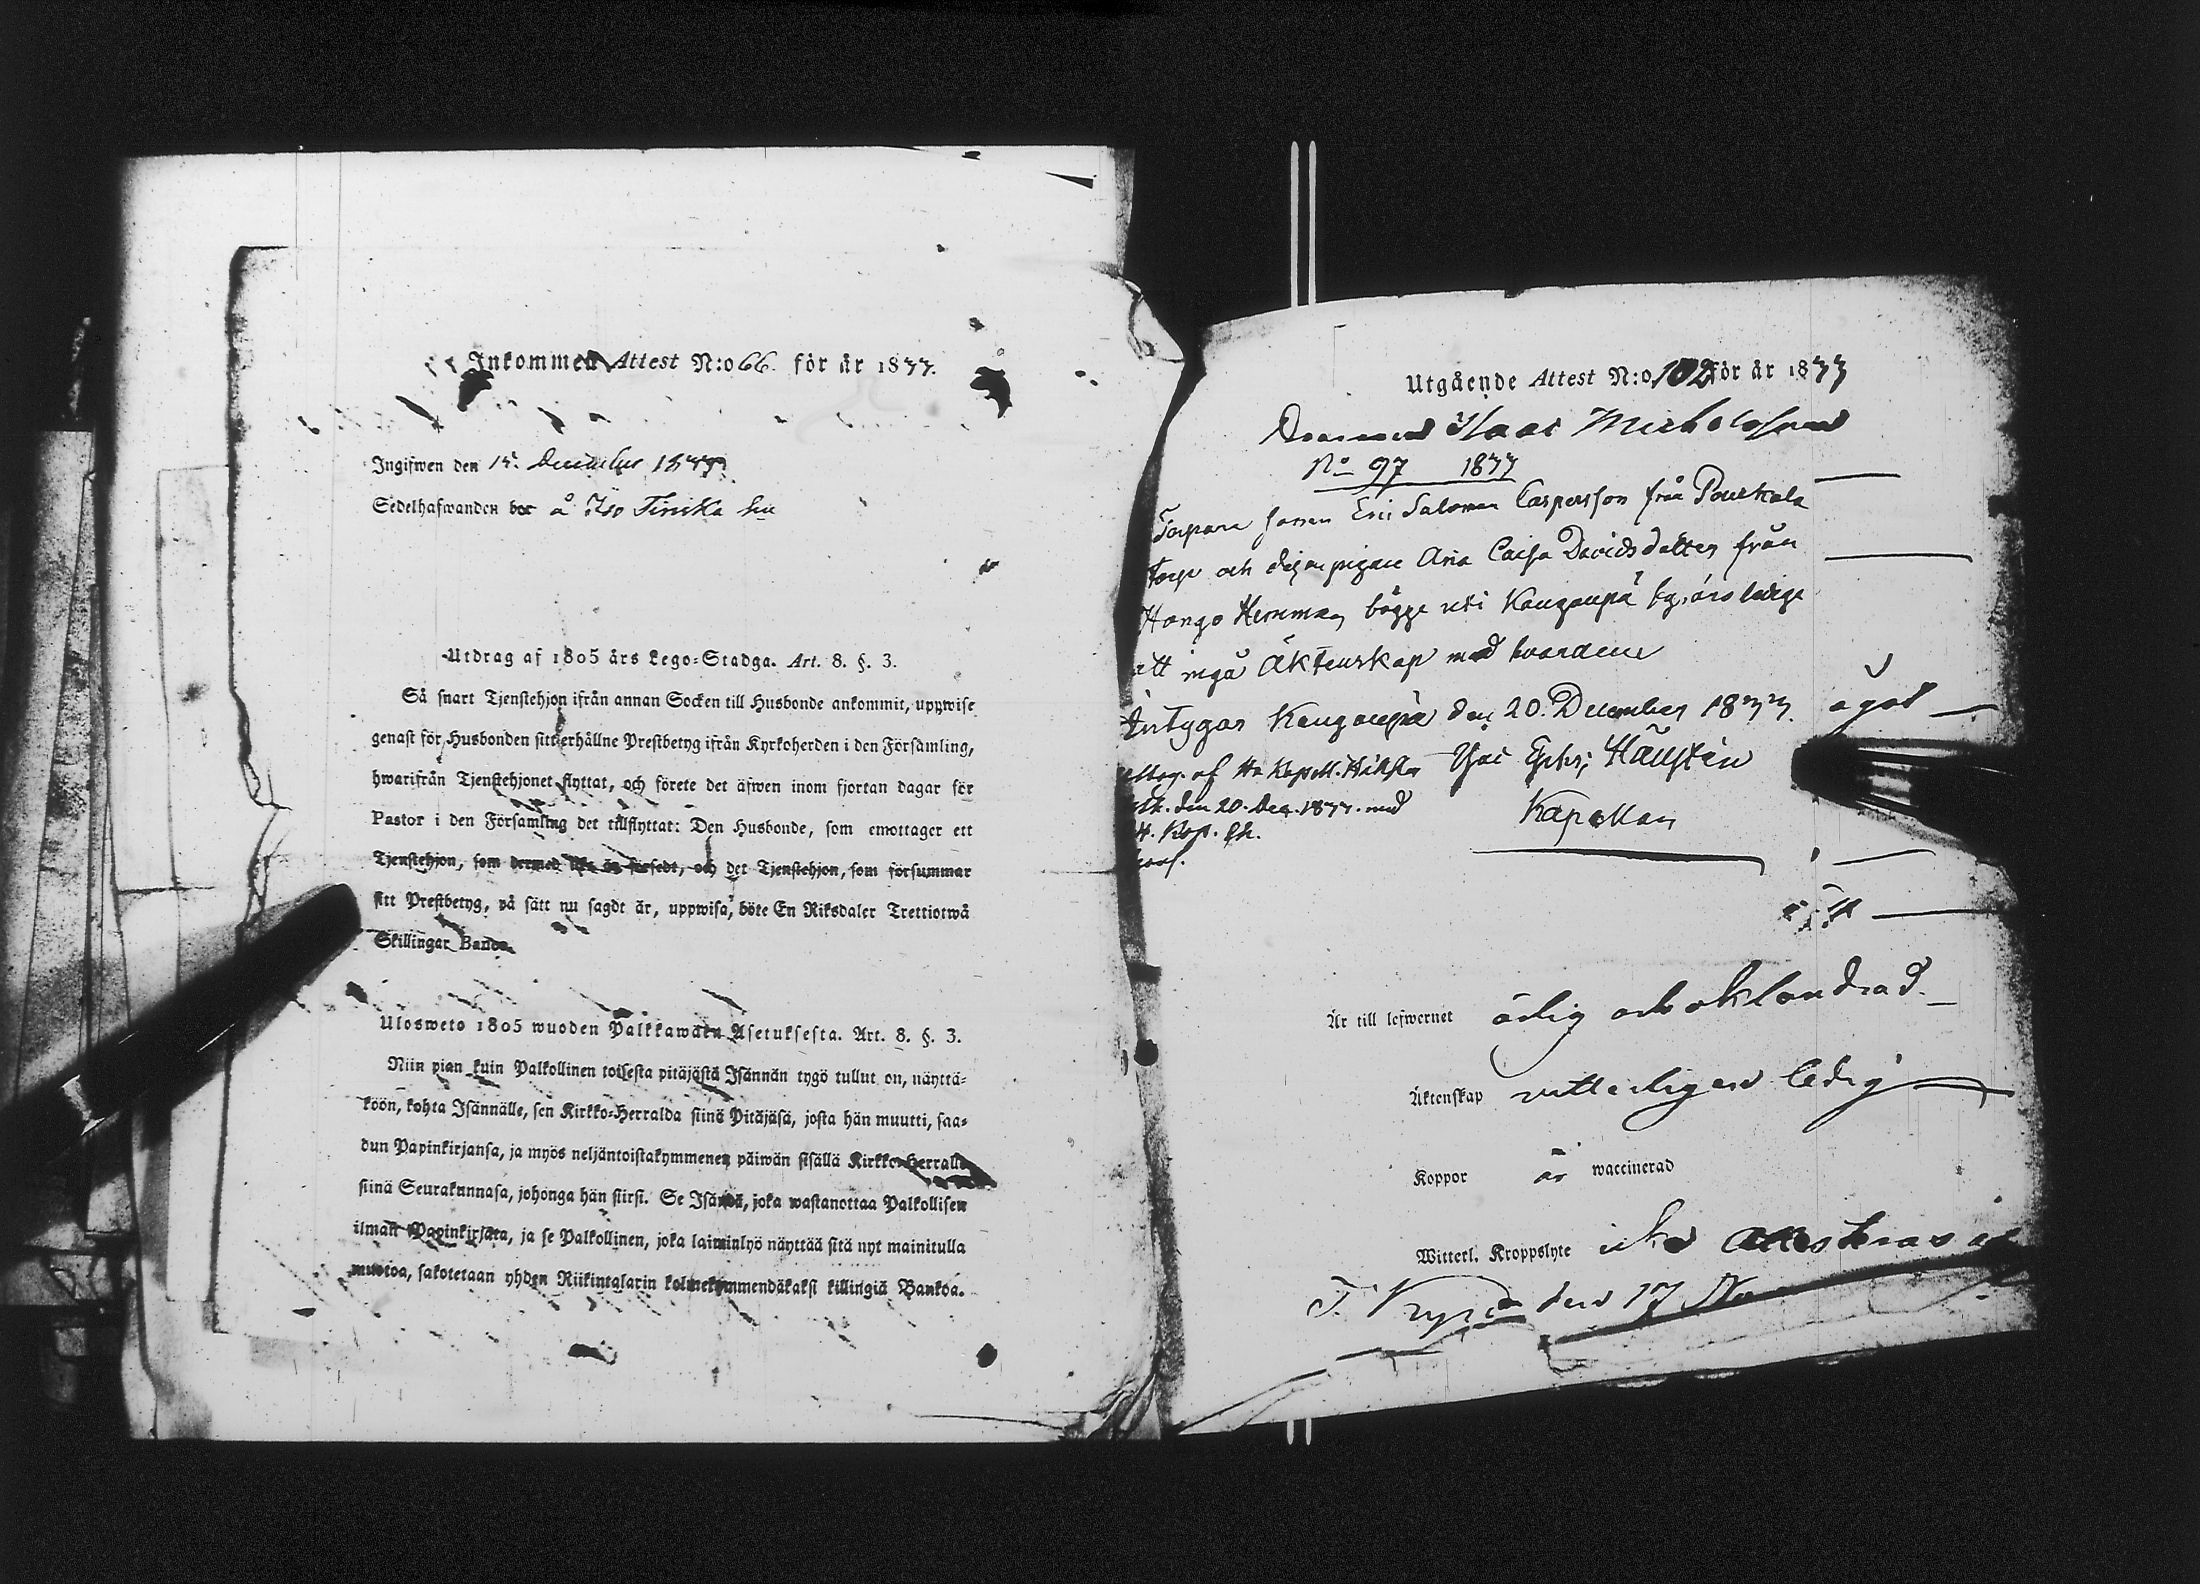 Inkommen Attest N:o 66. för år 1877.
Ingifwen den 15. December 1877.
Sedelhafwanden bor å Iso Tiirika
Utdrag af 1805 års Lego-Stadga. Art. 8. §. 3.
Så snart Tjenstehjon ifrån annan Socken till Husbonde ankommit, uppwise
genast för Husbonden sitt erhållne Prestbetyg ifrån Kyrkoherden i den Församling,
hwarifrån Tjenstehjonet flyttat, och förete det äfwen inom fjortan dagar för
Pastor i den Församling det tillflyttat: Den Husbonde, som emottager ett
Tjenstehjon, som dermed icke är försedt, och det Tjenstehjon, som försummar
sitt Prestbetyg, på sätt nu sagdt är, uppwisa, böte En Riksdaler Trettiotwå
Skillingar Banco.
Ulosweto 1805 wuoden Palkkawäen Asetuksesta. Art. 8. §. 3.
Niin pian kuin Palkollinen toisesta pitäjästä Isännän tygö tullut on, näyttä-
köön, kohta Isännälle, sen Kirkko-Herralda siinä Pitäjäsä, josta hän muutti, saa-
dun Papinkirjansa, ja myös neljäntoistakymmenen päiwän sisällä Kirkko-Herralle
siinä Seurakunnasa, johonga hän siirsi. Se Isändä, joka wastanottaa Palkollisen
ilman Papinkirjata, ja se Palkollinen, joka laiminlyö näyttää sitä nyt mainitulla
muotoa, sakotetaan yhden Riikintalarin kolmekymmendäkaksi killingiä Bankoa.
Utgående Attest N:o 102 för år 1877
Isaac Michelsson
No 97 1877
Torpare sonen Eric Salomon Caspersson från Pourkala
torp och pigan Ana Caisa Davidsdotter från
Hongo Hemman bägge uti Kougoupä
att ingå Äktenskap med hvarandra
Intygar Kougoupä den 20. December 1877.
af Kapell.
den 20. Dec. 1877. med
Kapellan
Är till lefwernet ärlig och oklandrad
Äktenskap vitterligen ledig
Koppor är waccinerad
Witterl. Kroppslyte icke Attesteras
den 17